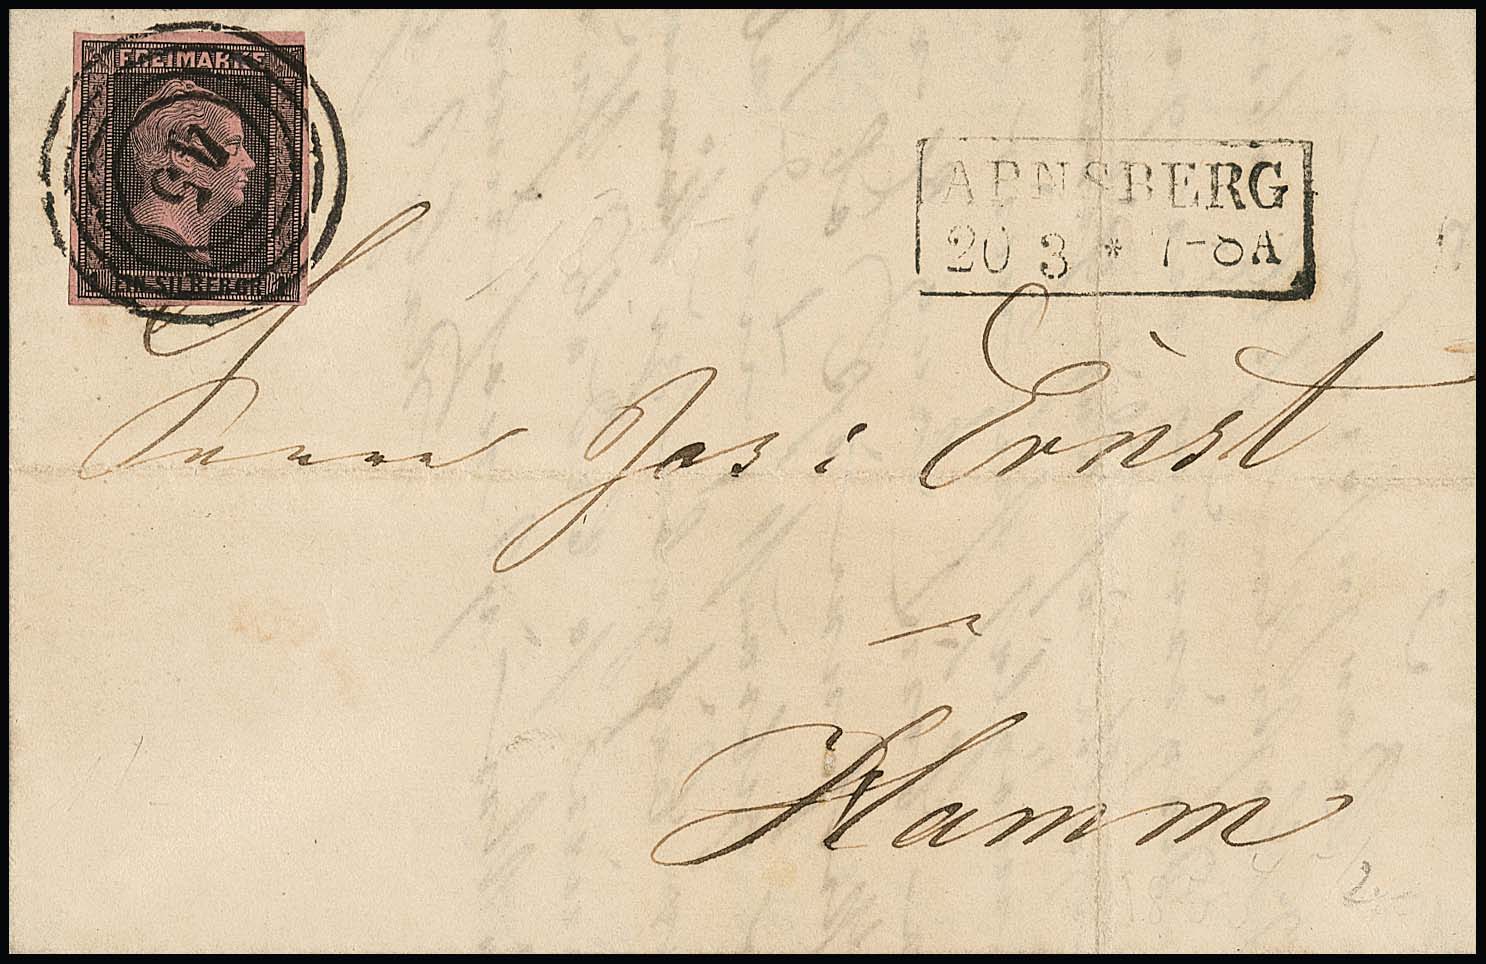 FREIMARKE
45
EIN SILBERGR.
ARNSBERG
20 3 * 7-8A
Herrn Jos: Ernst
Hamm